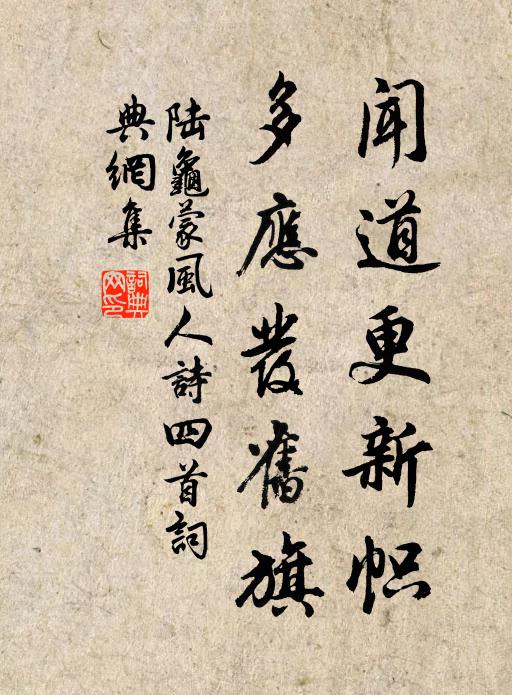 闻道更新帜
多應發舊旗
陆龜蒙風人詩四首詞
典網集
詞典
网印